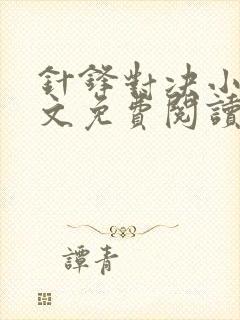 針鋒對決小
文免費閱讀
譚青